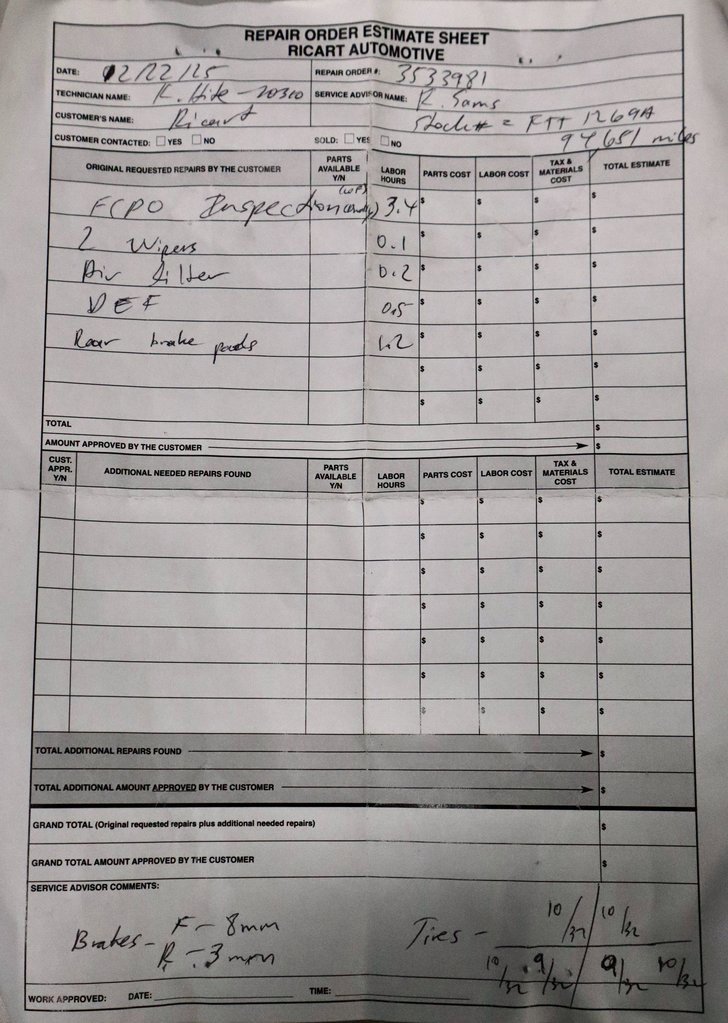 REPAIR ORDER ESTIMATE SHEET
RICART AUTOMOTIVE
DATE: 02/22/25 REPAIR ORDER #: 3533981
TECHNICIAN NAME: K. Hite - 20310 SERVICE ADVISOR NAME: R. Sams
CUSTOMER'S NAME: Ricart Stock# = FTT 1269A
CUSTOMER CONTACTED: YES NO SOLD: YES NO 94,651 miles
ORIGINAL REQUESTED REPAIRS BY THE CUSTOMER PARTS AVAILABLE Y/N LABOR HOURS PARTS COST LABOR COST TAX & MATERIALS COST TOTAL ESTIMATE
FCPO Inspection 3.4 $ $ $ $
2 Wipers 0.1 $ $ $ $
Air filter 0.2 $ $ $ $
DEF 0.5 $ $ $ $
Rear brake pads 1.2 $ $ $ $
$ $ $ $
$ $ $ $
TOTAL $
AMOUNT APPROVED BY THE CUSTOMER $
CUST. APPR. Y/N ADDITIONAL NEEDED REPAIRS FOUND PARTS AVAILABLE Y/N LABOR HOURS PARTS COST LABOR COST TAX & MATERIALS COST TOTAL ESTIMATE
$ $ $ $
$ $ $ $
$ $ $ $
$ $ $ $
$ $ $ $
$ $ $ $
$ $ $ $
TOTAL ADDITIONAL REPAIRS FOUND $
TOTAL ADDITIONAL AMOUNT APPROVED BY THE CUSTOMER $
GRAND TOTAL (Original requested repairs plus additional needed repairs) $
GRAND TOTAL AMOUNT APPROVED BY THE CUSTOMER $
SERVICE ADVISOR COMMENTS:
Brakes - F - 8mm
R - 3mm
Tires - 10/32 10/32
10/32 9/32 9/32 10/32
WORK APPROVED: DATE: TIME: